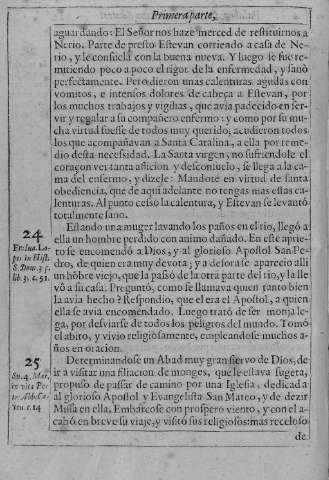 Primera parte,
aguardando: El Señor nos haze merced de restituirnos a
Nerio. Parte de presto Estevan corriendo a casa de Ne-
rio, y le consuela con la buena nueva. Y luego se fue re-
mitiendo poco a poco el rigor de la enfermedad, y sanò
perfectamente. Pero dieron unas calenturas agudas con
vomitos, e intensos dolores de cabeça a Estevan, por
los muchos trabajos y vigilias, que avia padecido en ser-
vir y regalar a su compañero enfermo: y como por su mu-
cha virtud fuesse de todos muy querido, acudieron todos
los que acompañavan a Santa Catalina, a ella por reme-
dio desta necesidad. La Santa virgen, no sufriendole el
coraçon ver tanta aflicion y desconsuelo, se llega a la ca-
ma del enfermo, y dizele: Mandote en virtud de santa
obediencia, que de aqui adelante no tengas mas estas ca-
lenturas. Al punto cessò la calentura, y Estevan se levantò
totalmente sano.
24
Estando una muger lavando los paños en el rio, llegò a
ella un hombre perdido con animo dañado. En este aprie-
to se encomendò a Dios, y al glorioso Apostol San Pe-
dro, de quien era muy devota; y a desora se apareciò alli
un hõbre viejo, que la passò de la otra parte del rio, y la lle
vò a su casa. Preguntò, como se llamava quien tanto bien
la avia hecho? Respondio, que el era el Apostol, a quien
ella se avia encomendado. Luego tratò de ser monja le-
ga, por desviarse de todos los peligros del mundo. Tomò
el abito, y vivio religiosamente, empleandose muchos a-
ños en oracion.
25
Determinandose un Abad muy gran siervo de Dios, de
ir a visitar una filiacion de monges, que le estava sugeta,
propuso de passar de camino por una Iglesia, dedicada a
al glorioso Apostol y Evangelista San Mateo, y de dezir
Missa en ella, Embarcose con prospero viento, y con el a-
cabò en breve su viaje, y visitò sus religiosos: mas receloso
de